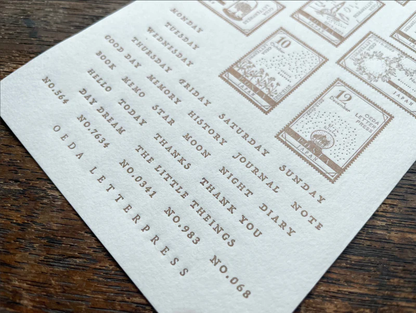 MONDAY
TUESDAY
WEDNESDAY
THURSDAY FRIDAY SATURDAY SUNDAY
GOOD DAY MEMORY HISTORY JOURNAL NOTE
BOOK MEMO STAR MOON NIGHT DIARY
HELLO TODAY THANKS THANK YOU
DAY DREAM THE LITTLE THEINGS
NO.564 NO.7654 NO.0341 NO.983 NO.068
OEDA LETTERPRESS
10
12
OEDA
LETTER
PRESS
JAPAN